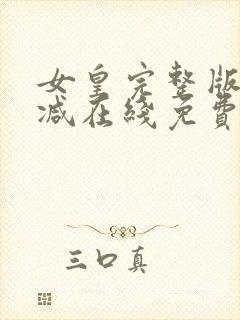 女皇完整版
减在线免費
三口真